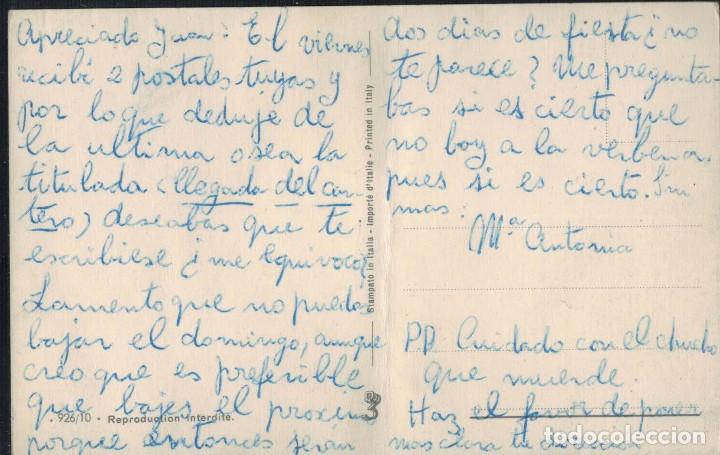 Apreciado Juan: El viernes
recibí 2 postales tuyas y
por lo que deduje de
la ultima o sea la
titulada (llegada del car-
tero) deseabas que te
escribiese ¿me equivoco?
Lamento que no puedas
bajar el domingo, aunque
creo que es preferible
que bajes el proximo
porque entonces seran
dos dias de fiesta ¿no
te parece? Me pregunta-
bas si es cierto que
no boy a la verbena,
pues si es cierto. Sin
mas:
Mª Antonia
P.D. Cuidado con el chucho
que muerde.
Haz el favor de poner
mas clara tu direccion
. 926/10 · Reproduction interdite.
Stampato in Italia - Importé d'Italie - Printed in Italy
todocoleccion